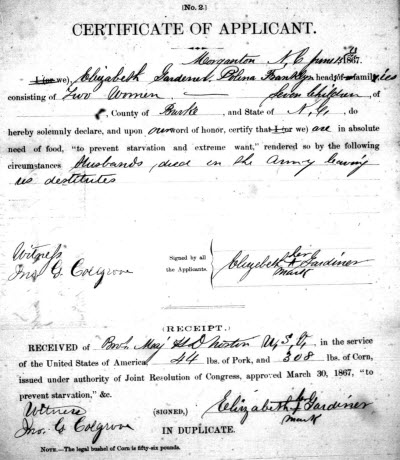 (No. 2.)
CERTIFICATE OF APPLICANT.
Morganton N, C June 1867.
I (or we), Elizabeth Gardener, Polina Franklyn head of families
consisting of Two Women Seven Children of
, County of Burke, and State of N, C, do
hereby solemnly declare, and upon our word of honor, certify that I (or we) are in absolute
need of food, "to prevent starvation and extreme want," rendered so by the following
circumstances Husbands died in the Army leaving
us destitutes
Witness
Jno. G Colgrove
Signed by all
the Applicants.
Elizabeth her X Gardiner
mark
(RECEIPT.)
RECEIVED of Bvt. Maj H D Norton U, S, A, in the service
of the United States of America, 44 lbs. of Pork, and 308 lbs. of Corn,
issued under authority of Joint Resolution of Congress, approved March 30, 1867, "to
prevent starvation," &c.
Witness (SIGNED,) Elizabeth her X Gardiner
mark
Jno. G Colgrove
IN DUPLICATE.
NOTE.—The legal bushel of Corn is fifty-six pounds.